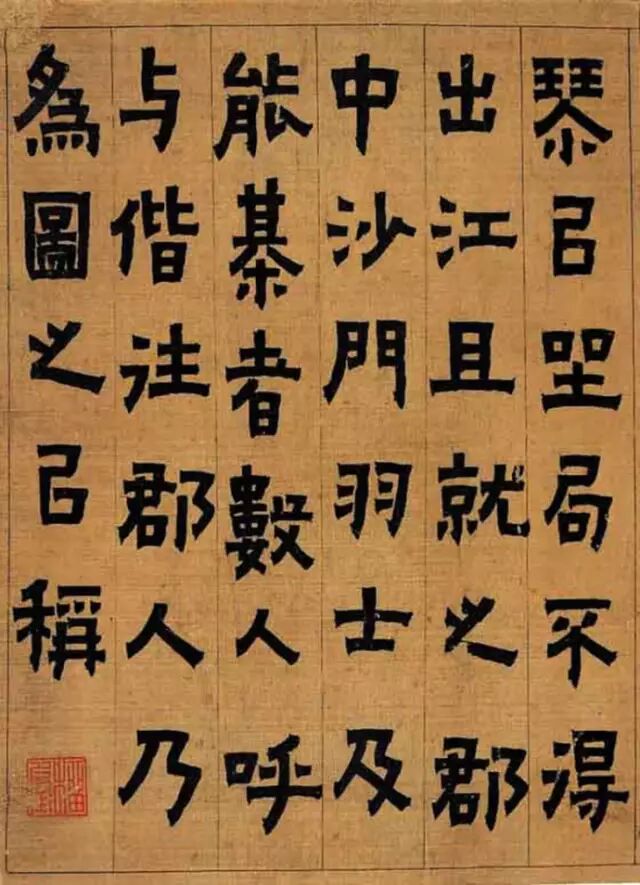 琹㠯坐局不淂
出江且就之郡
中沙門羽士及
能棊者數人呼
与偕往郡人乃
為圖之㠯稱